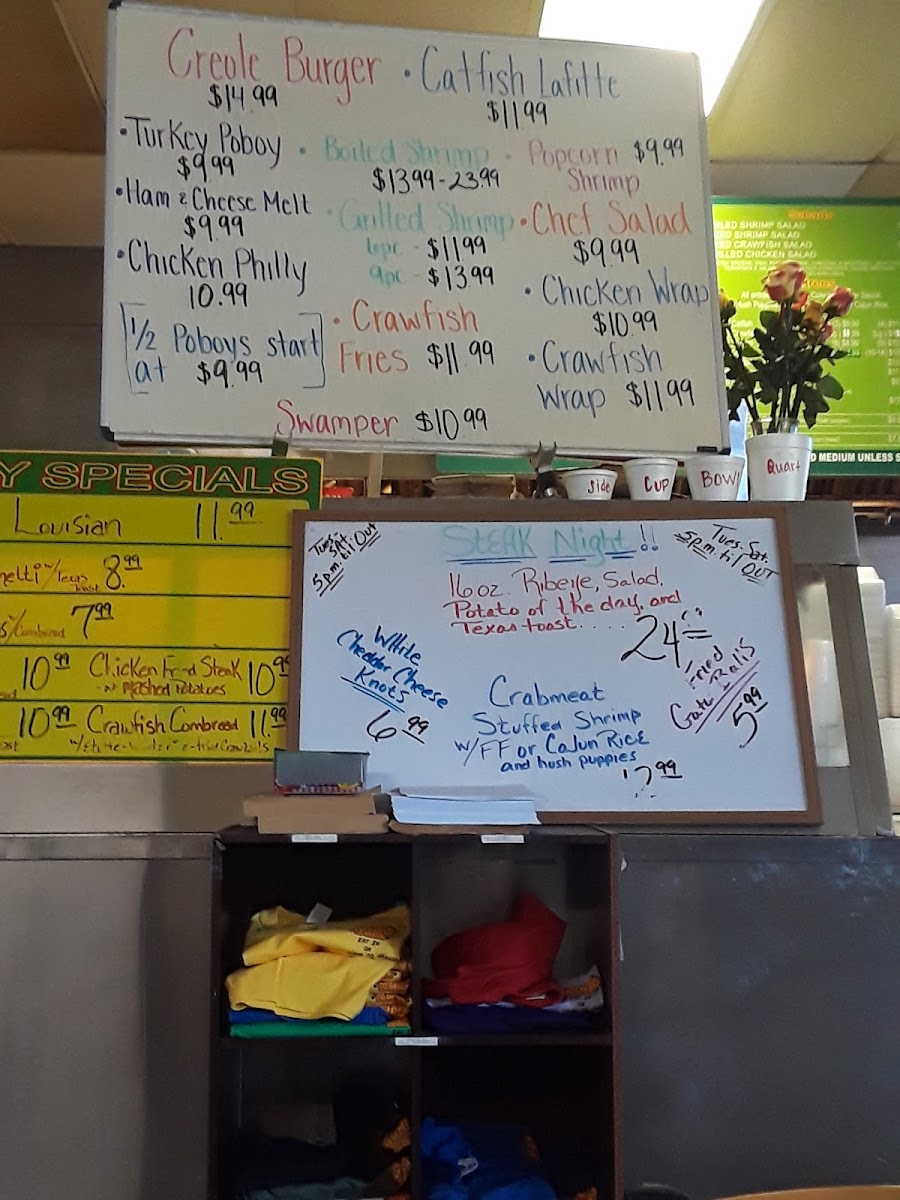 Creole Burger
$14.99
• Catfish Lafitte
$11.99
• Turkey Poboy
$9.99
• Ham & Cheese Melt
$9.99
• Chicken Philly
10.99
[1/2 Poboys start
at $9.99]
• Boiled Shrimp
$13.99-23.99
• Grilled Shrimp
6pc - $11.99
9pc - $13.99
• Crawfish
Fries $11.99
Swamper $10.99
• Popcorn $9.99
Shrimp
• Chef Salad
$9.99
• Chicken Wrap
$10.99
• Crawfish
Wrap $11.99
SHRIMP SALAD
SHRIMP SALAD
CRAWFISH SALAD
CHICKEN SALAD
MEDIUM UNLESS
Side
Cup
Bowl
Quart
Y SPECIALS
Louisian 11.99
w/Texas
Toast 8.99
w/Cornbread 7.99
10.99 Chicken Fried Steak 10.99
w/ Mashed Potatoes
10.99 Crawfish Cornbread 11.99
Tues.-Sat.
5p.m. til OUT
Steak Night!!
Tues.-Sat.
5p.m. til OUT
16oz. Ribeye, Salad,
Potato of the day, and
Texas toast.....
24
White
Cheddar Cheese
Knots
6.99
Fried
Gator Balls
5.99
Crabmeat
Stuffed Shrimp
w/FF or Cajun Rice
and hush puppies